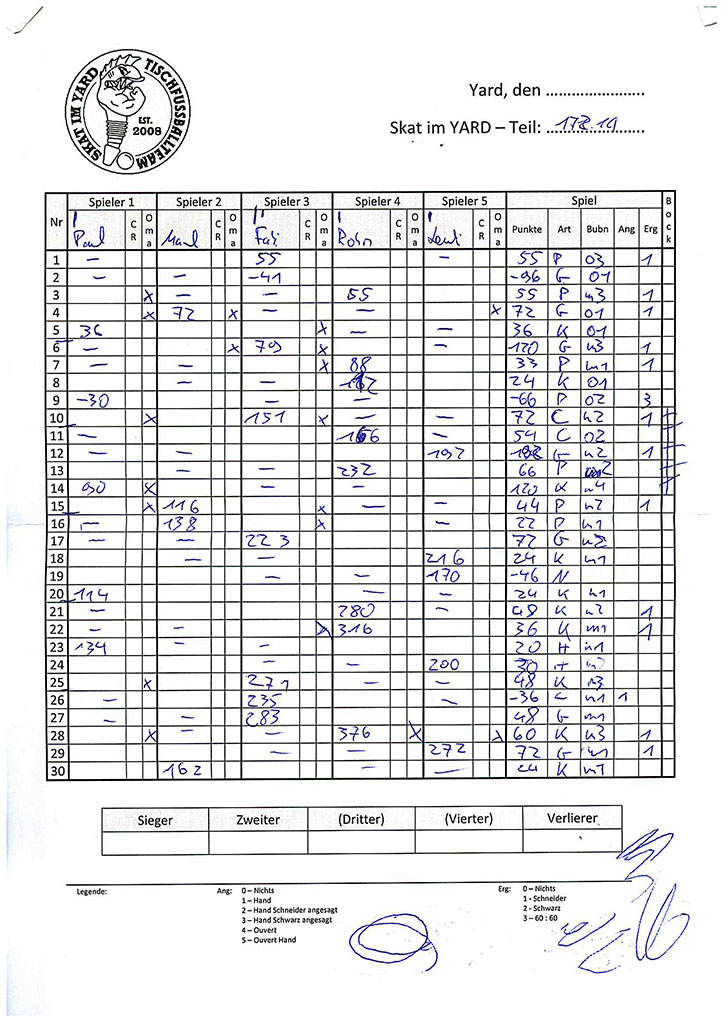 SKAT IM YARD TISCHFUSSBALLTEAM
EST. 2008
Yard, den ........................
Skat im YARD – Teil: 178.19
Nr Spieler 1 Spieler 2 Spieler 3 Spieler 4 Spieler 5 Spiel Bock
Paul CR Oma CR Oma Fati CR Oma Robin CR Oma CR Oma Punkte Art Bubn Ang Erg
1 — 55 — 55 P 03 1
2 — — -41 -96 G 01
3 x — — 55 55 P 1
4 x 72 x — — x 72 G 01 1
5 36 x — — 36 K 01
6 — x 79 x — 120 G n3 1
7 — — x 88 33 P 1
8 — — 24 K 01
9 -30 — — -66 P 02 3
10 x 151 x — — 72 C n2 1
11 — 166 — 54 C 02
12 — — 192 G n2 1
13 — — 232 66 P
14 90 x — — 120 K n4
15 x 116 x — — 44 P n2 1
16 — 138 x — 22 P n1
17 — — 223 72 G n2
18 — — 216 24 K n1
19 — — 170 -46 N
20 114 — — 24 K n1
21 — 280 — 48 K n2 1
22 — — x 316 36 K m1 1
23 134 — — 20 H n1
24 — — 200 30 H
25 x 271 — — 48 K n3
26 — 235 — -36 n1 1
27 — — 283 48 G m1
28 x — 376 x x 60 K n3 1
29 — — 272 72 G 1
30 162 — — 24 K n1
Sieger Zweiter (Dritter) (Vierter) Verlierer
Legende: Ang: 0 – Nichts Erg: 0 – Nichts
1 – Hand 1 - Schneider
2 – Hand Schneider angesagt 2 - Schwarz
3 – Hand Schwarz angesagt 3 – 60 : 60
4 – Ouvert
5 – Ouvert Hand